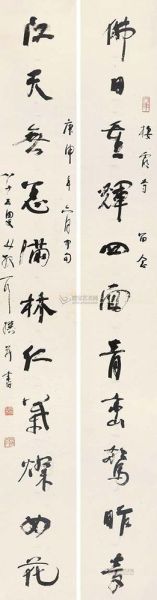 佛日重輝四面青巒驚昨夢
棲霞寺 留念
江天無恙滿林紅葉燦如花
庚申年六月中旬
八十五叟
撰并書